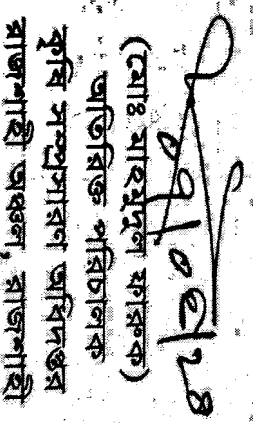 (মোঃ মাহমুদুল ফারুক)
অতিরিক্ত পরিচালক
কৃষি সম্প্রসারণ অধিদপ্তর
রাজশাহী অঞ্চল, রাজশাহী